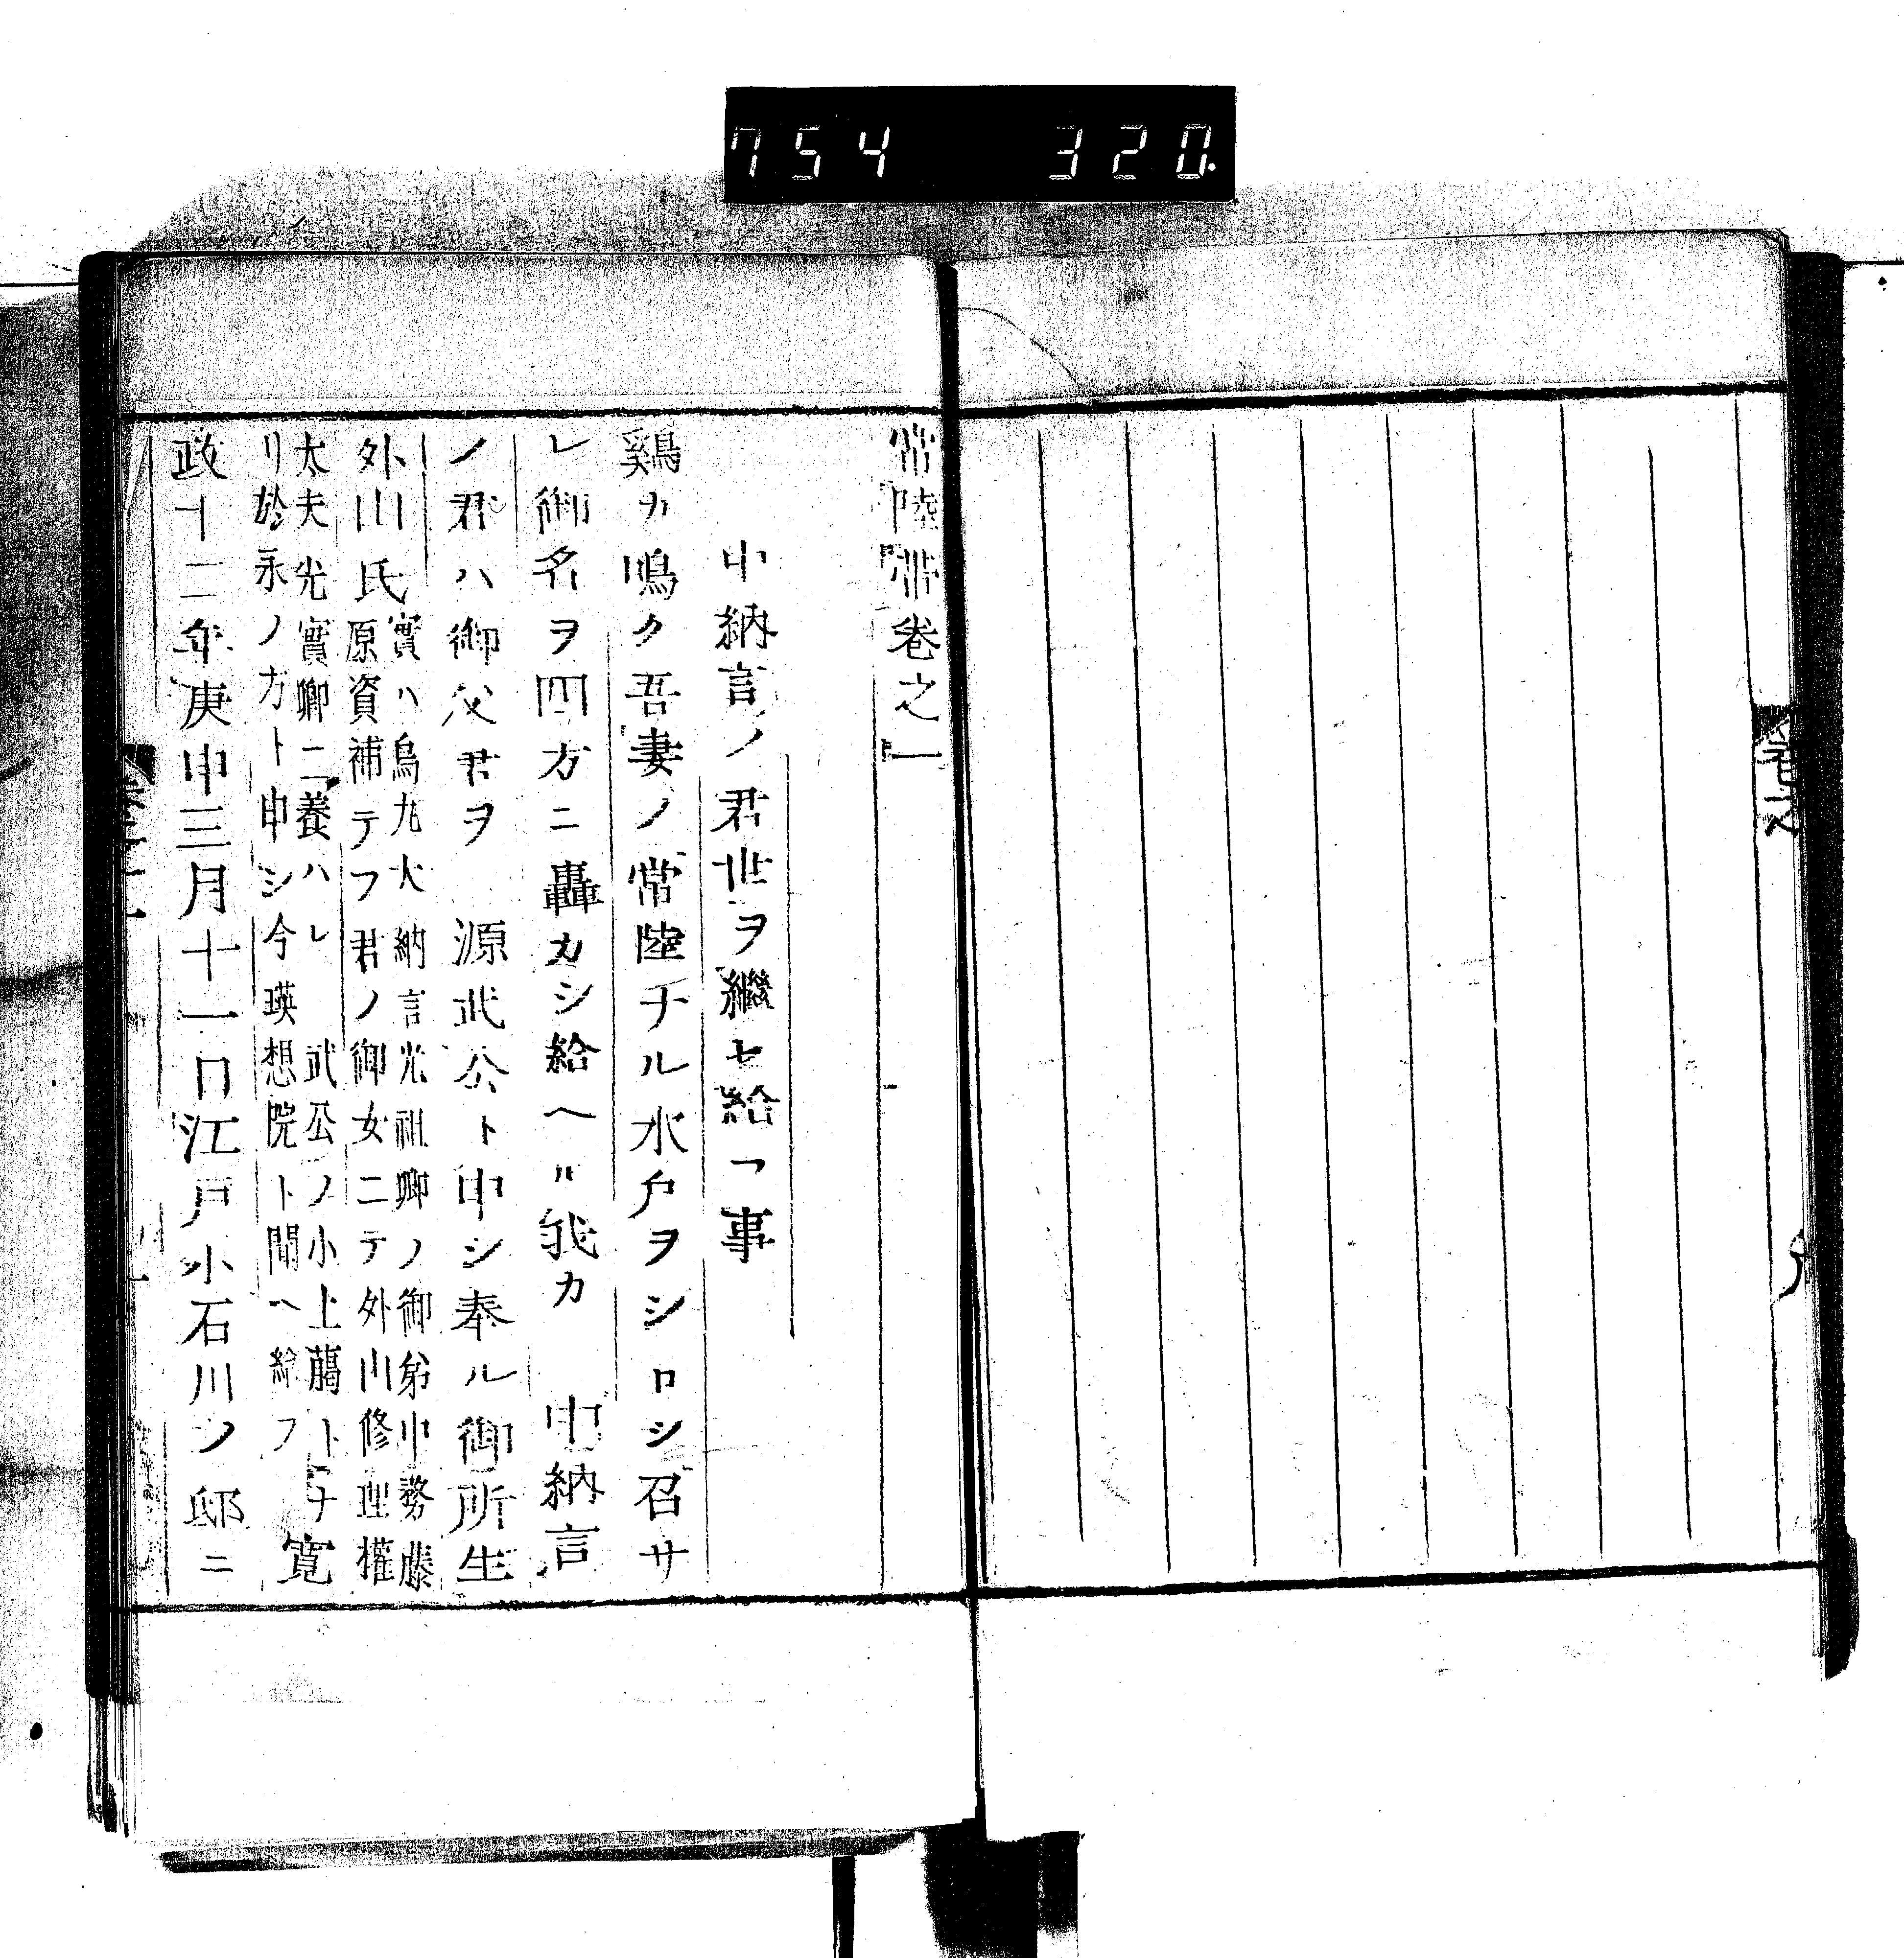 754 320.
常陸帯巻之一
中納言ノ君世ヲ繼セ給フ事
鷄カ鳴ク吾妻ノ常陸ナル水戸ヲシロシ召サ
レ御名ヲ四方ニ轟カシ給ヘル我カ 中納言
ノ君ハ御父君ヲ 源武公ト申シ奉ル御所生
外山氏
實ハ烏丸大納言光祖卿ノ御弟中務藤
原資補テフ君ノ御女ニテ外山修理權
太夫光實卿ニ養ハレ 武公ノ小上﨟トナ
リ於永ノ方ト申シ今瑛想院ト聞ヘ給フ
寛
政十二年庚申三月十一日江戸小石川ノ邸ニ